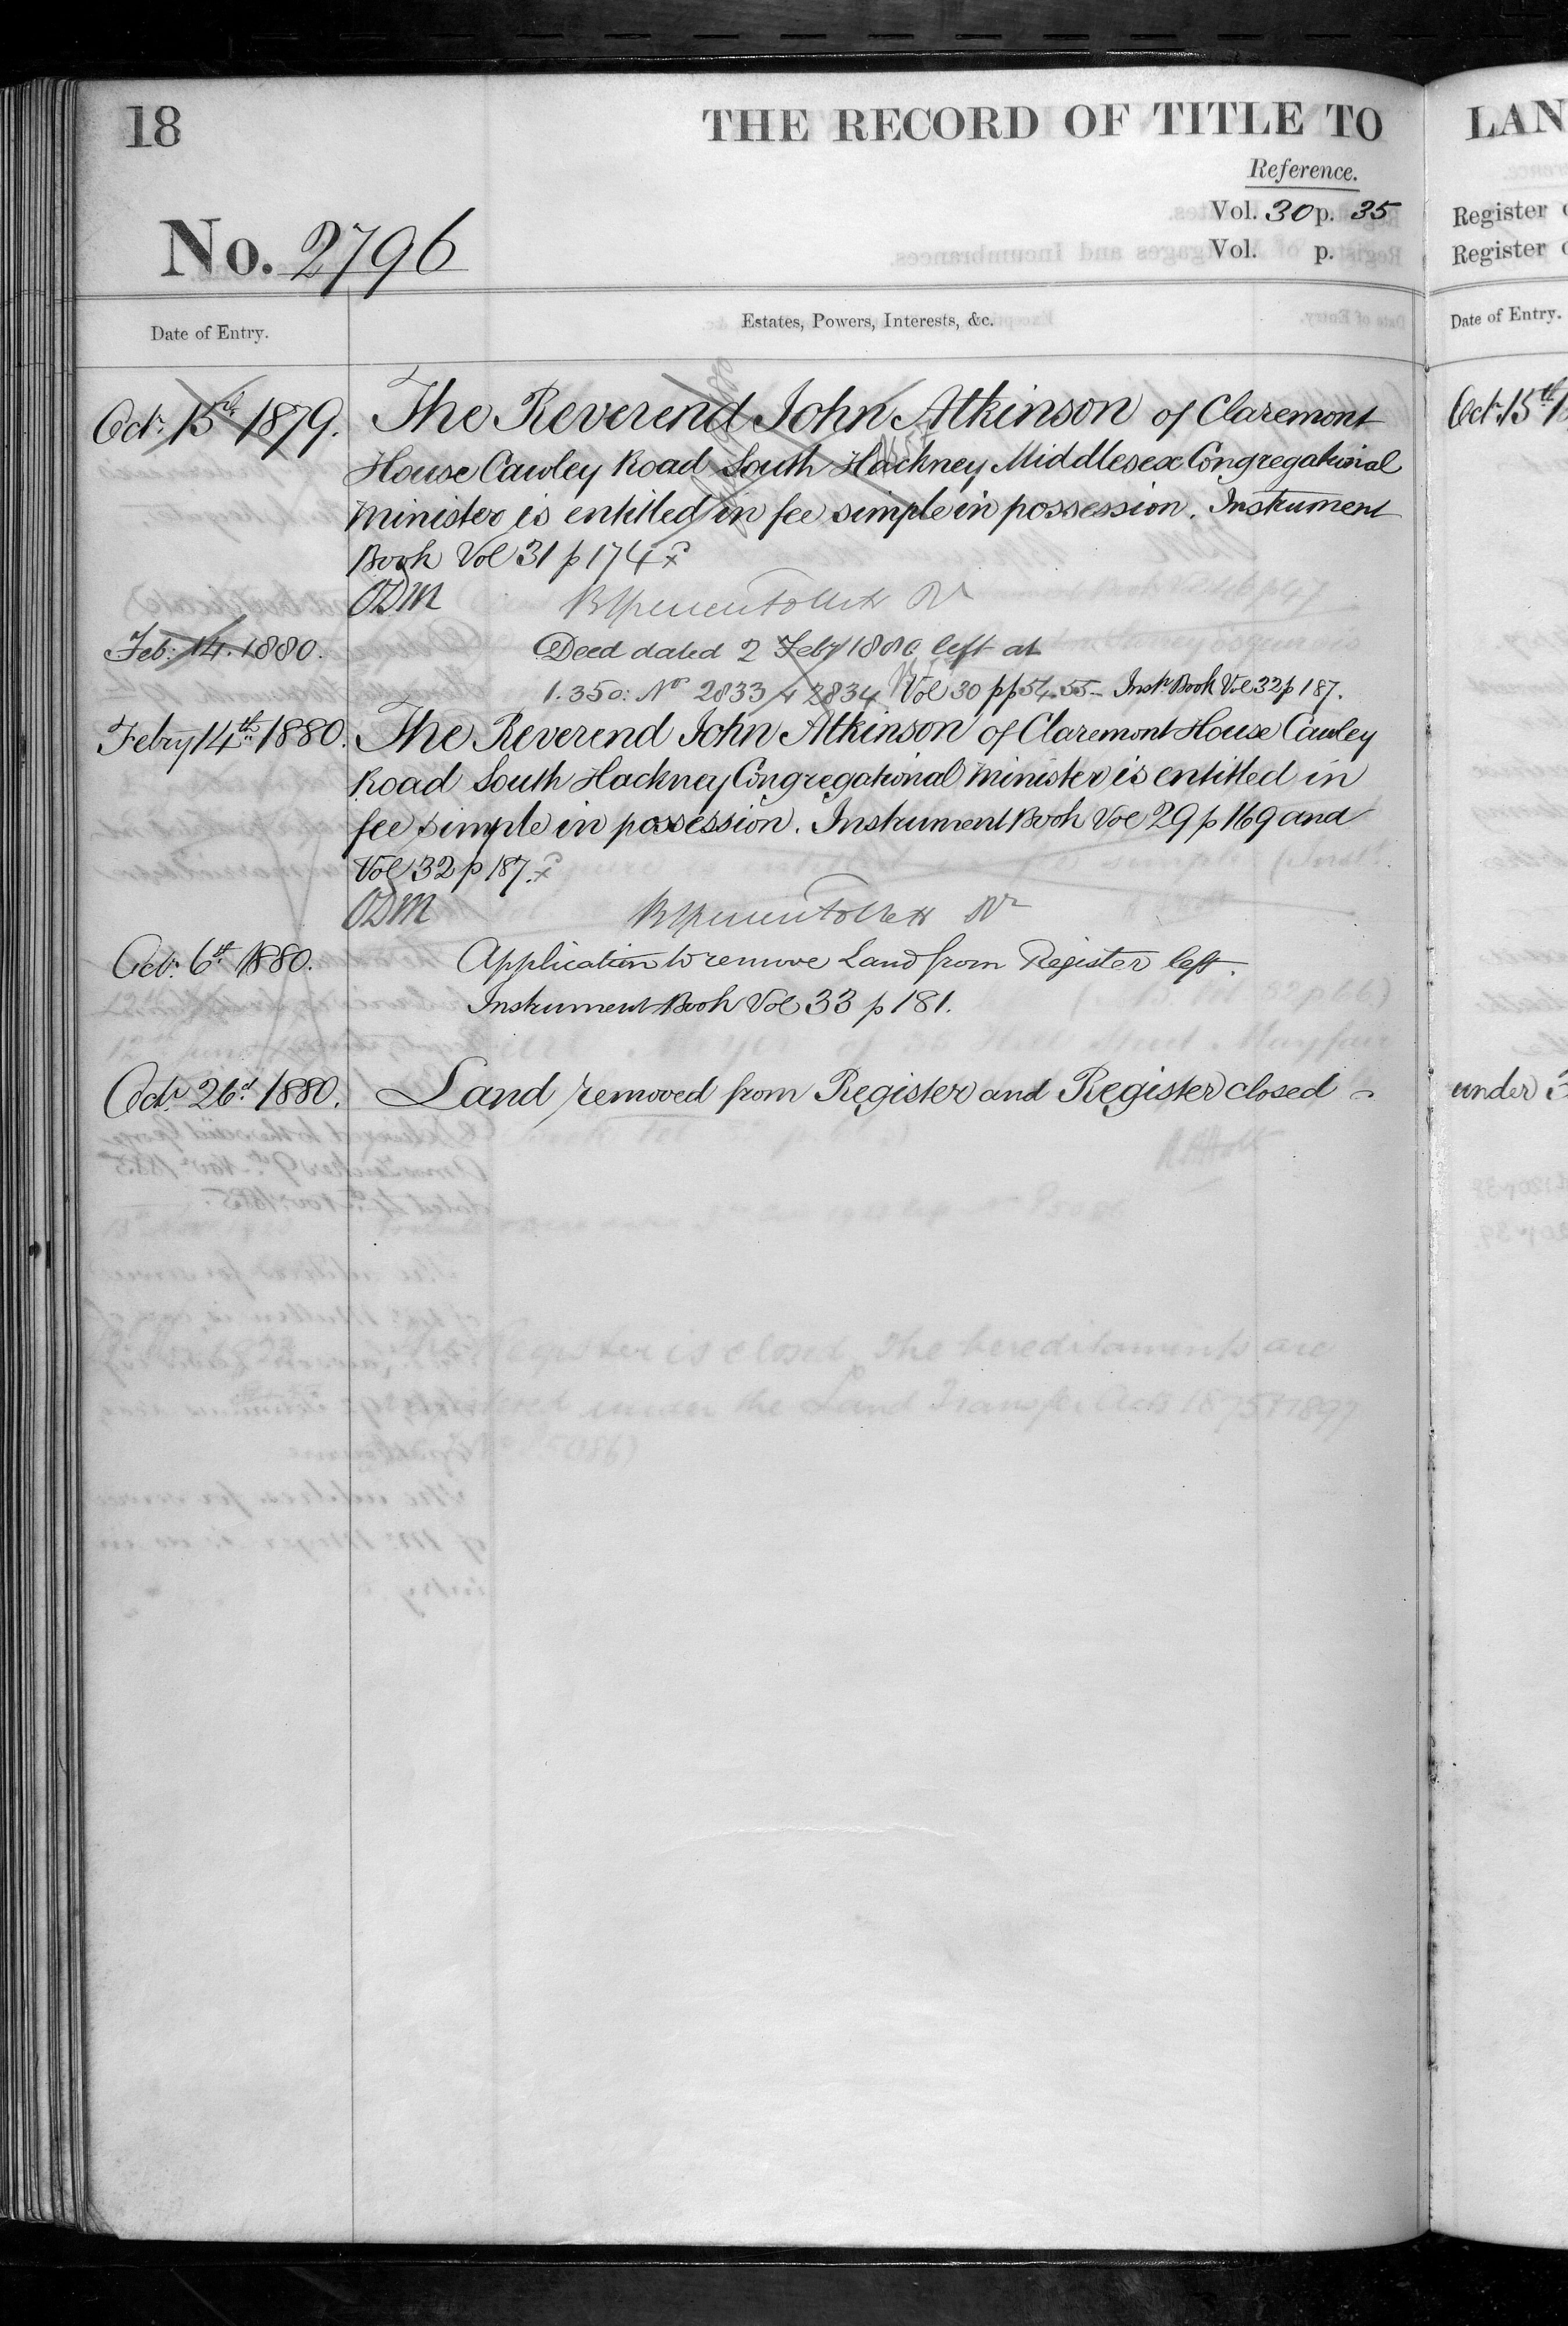 18
THE RECORD OF TITLE TO
Reference.
Vol. 30 p. 35
Vol. p.
No. 2796
Date of Entry.
Estates, Powers, Interests, &c.
Oct. 15th 1879.
The Reverend John Atkinson of Claremont
House Cawley Road South Hackney Middlesex Congregational
Minister is entitled in fee simple in possession. Instrument
Book Vol 31 p 174
ODM
Feb: 14. 1880.
Deed dated 2 Feby 1880 left at
1.350: No 2833 & 2834 Vol 30 pp 54.55 - Inst. Book Vol 32 p 187.
Febry 14th 1880.
The Reverend John Atkinson of Claremont House Cawley
Road South Hackney Congregational Minister is entitled in
fee simple in possession. Instrument Book Vol 29 p 169 and
Vol 32 p 187.
ODM
Oct. 6th 1880.
Application to remove Land from Register left.
Instrument Book Vol 33 p 181.
Oct. 26th 1880.
Land removed from Register and Register closed
LAN
Register
Register
Date of Entry.
Oct. 15th 1
under 3